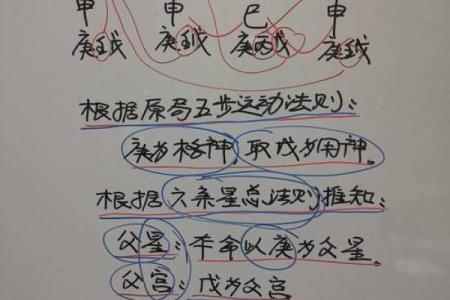 申 申 巳 申
庚壬戊 庚壬戊 庚丙戊 庚壬戊
根据原局五步运动法则:
庚为格神,取戊为用神。
根据六条星总法则推知:
父星:本命以庚为父星
父宫:戊为父宫